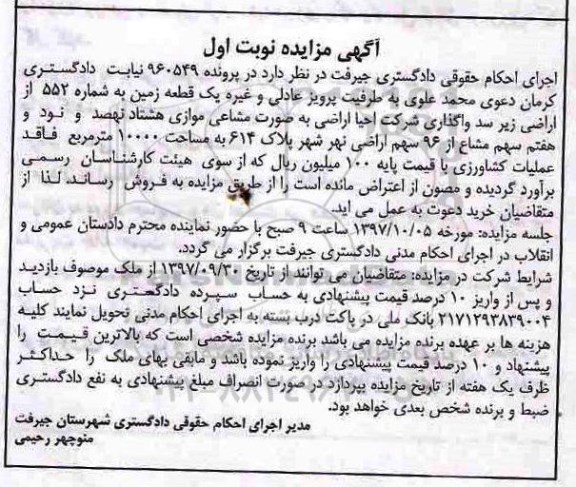 آگهی مزایده نوبت اول
اجرای احکام حقوقی دادگستری جیرفت در نظر دارد در پرونده ۹۶۰۵۴۹ نیابت دادگستری
کرمان دعوی محمد علوی به طرفیت پرویز عادلی و غیره یک قطعه زمین به شماره ۵۵۲ از
اراضی زیر سد واگذاری شرکت احیا اراضی به صورت مشاعی موازی هشتاد نهصد و نود و
هفتم سهم مشاع از ۹۶ سهم اراضی نهر شهر پلاک ۶۱۴ به مساحت ۱۰۰۰۰ مترمربع فاقد
عملیات کشاورزی با قیمت پایه ۱۰۰ میلیون ریال که از سوی هیئت کارشناسان رسمی
برآورد گردیده و مصون از اعتراض مانده است را از طریق مزایده به فروش رساند. لذا از
متقاضیان خرید دعوت به عمل می اید.
جلسه مزایده: مورخه ۱۳۹۷/۱۰/۰۵ ساعت ۹ صبح با حضور نماینده محترم دادستان عمومی و
انقلاب در اجرای احکام مدنی دادگستری جیرفت برگزار می گردد.
شرایط شرکت در مزایده: متقاضیان می توانند از تاریخ ۱۳۹۷/۰۹/۳۰ از ملک موصوف بازدید
و پس از واریز ۱۰ درصد قیمت پیشنهادی به حساب سپرده دادگستری نزد حساب
۲۱۷۱۲۹۳۸۳۹۰۰۴ بانک ملی در پاکت درب بسته به اجرای احکام مدنی تحویل نمایند کلیه
هزینه ها بر عهده برنده مزایده می باشد برنده مزایده شخصی است که بالاترین قیمت را
پیشنهاد و ۱۰ درصد قیمت پیشنهادی را واریز نموده باشد و مابقی بهای ملک را حداکثر
ظرف یک هفته از تاریخ مزایده بپردازد در صورت انصراف مبلغ پیشنهادی به نفع دادگستری
ضبط و برنده شخص بعدی خواهد بود.
مدیر اجرای احکام حقوقی دادگستری شهرستان جیرفت
منوچهر رحیمی